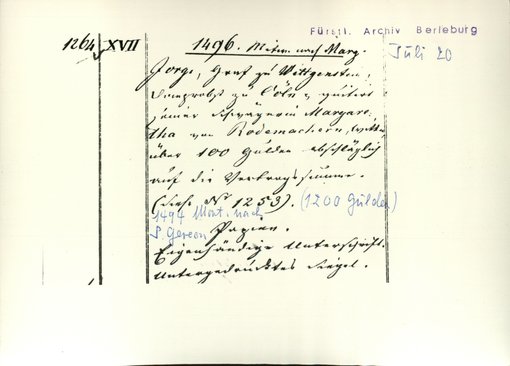 Fürstl. Archiv Berleburg
1264 XVII 1496. Mittw. nach Marg.
Juli 20
Jorge, Graf zu Wittgenstein,
Domprobst zu Cöln, quittirt
seiner Schwägerin Margare-
tha von Rodemachern, Wittwe
über 100 Gulden abschläglich
auf die Vertragssumme.
(siehe Nº 1253). (1200 Gulden)
1494 Mont. nach
S. Gereon
Papier.
Eigenhändige Unterschrift.
Untergedrucktes Siegel.